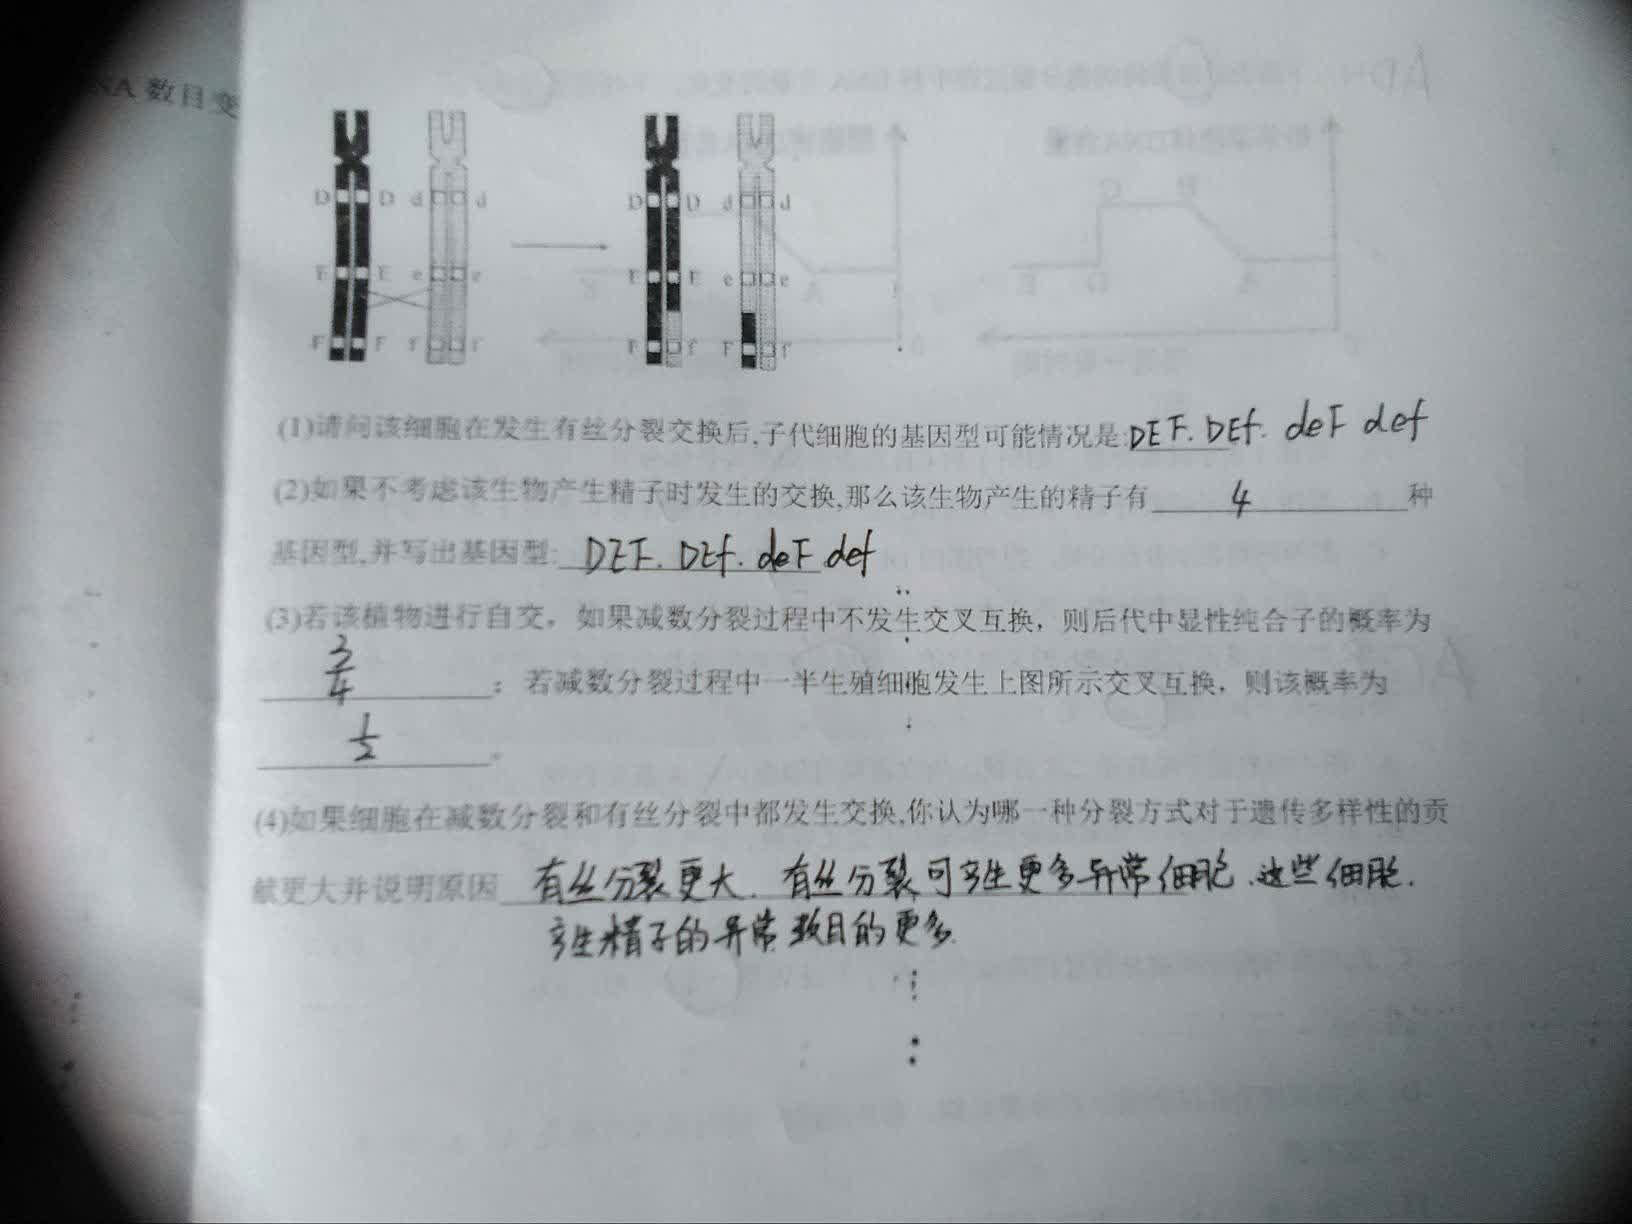 NA 数目变
D D d d
D D d d
E E e e
E E e e
F F f f
F f F f
(1)请问该细胞在发生有丝分裂交换后,子代细胞的基因型可能情况是:DEF. DEf. deF def
(2)如果不考虑该生物产生精子时发生的交换,那么该生物产生的精子有 4 种
基因型,并写出基因型: DEF. DEf. deF def
(3)若该植物进行自交，如果减数分裂过程中不发生交叉互换，则后代中显性纯合子的概率为
3/4 ；若减数分裂过程中一半生殖细胞发生上图所示交叉互换，则该概率为
1/2 。
(4)如果细胞在减数分裂和有丝分裂中都发生交换,你认为哪一种分裂方式对于遗传多样性的贡
献更大并说明原因 有丝分裂更大. 有丝分裂可产生更多异常细胞.这些细胞.
产生精子的异常数目的更多.